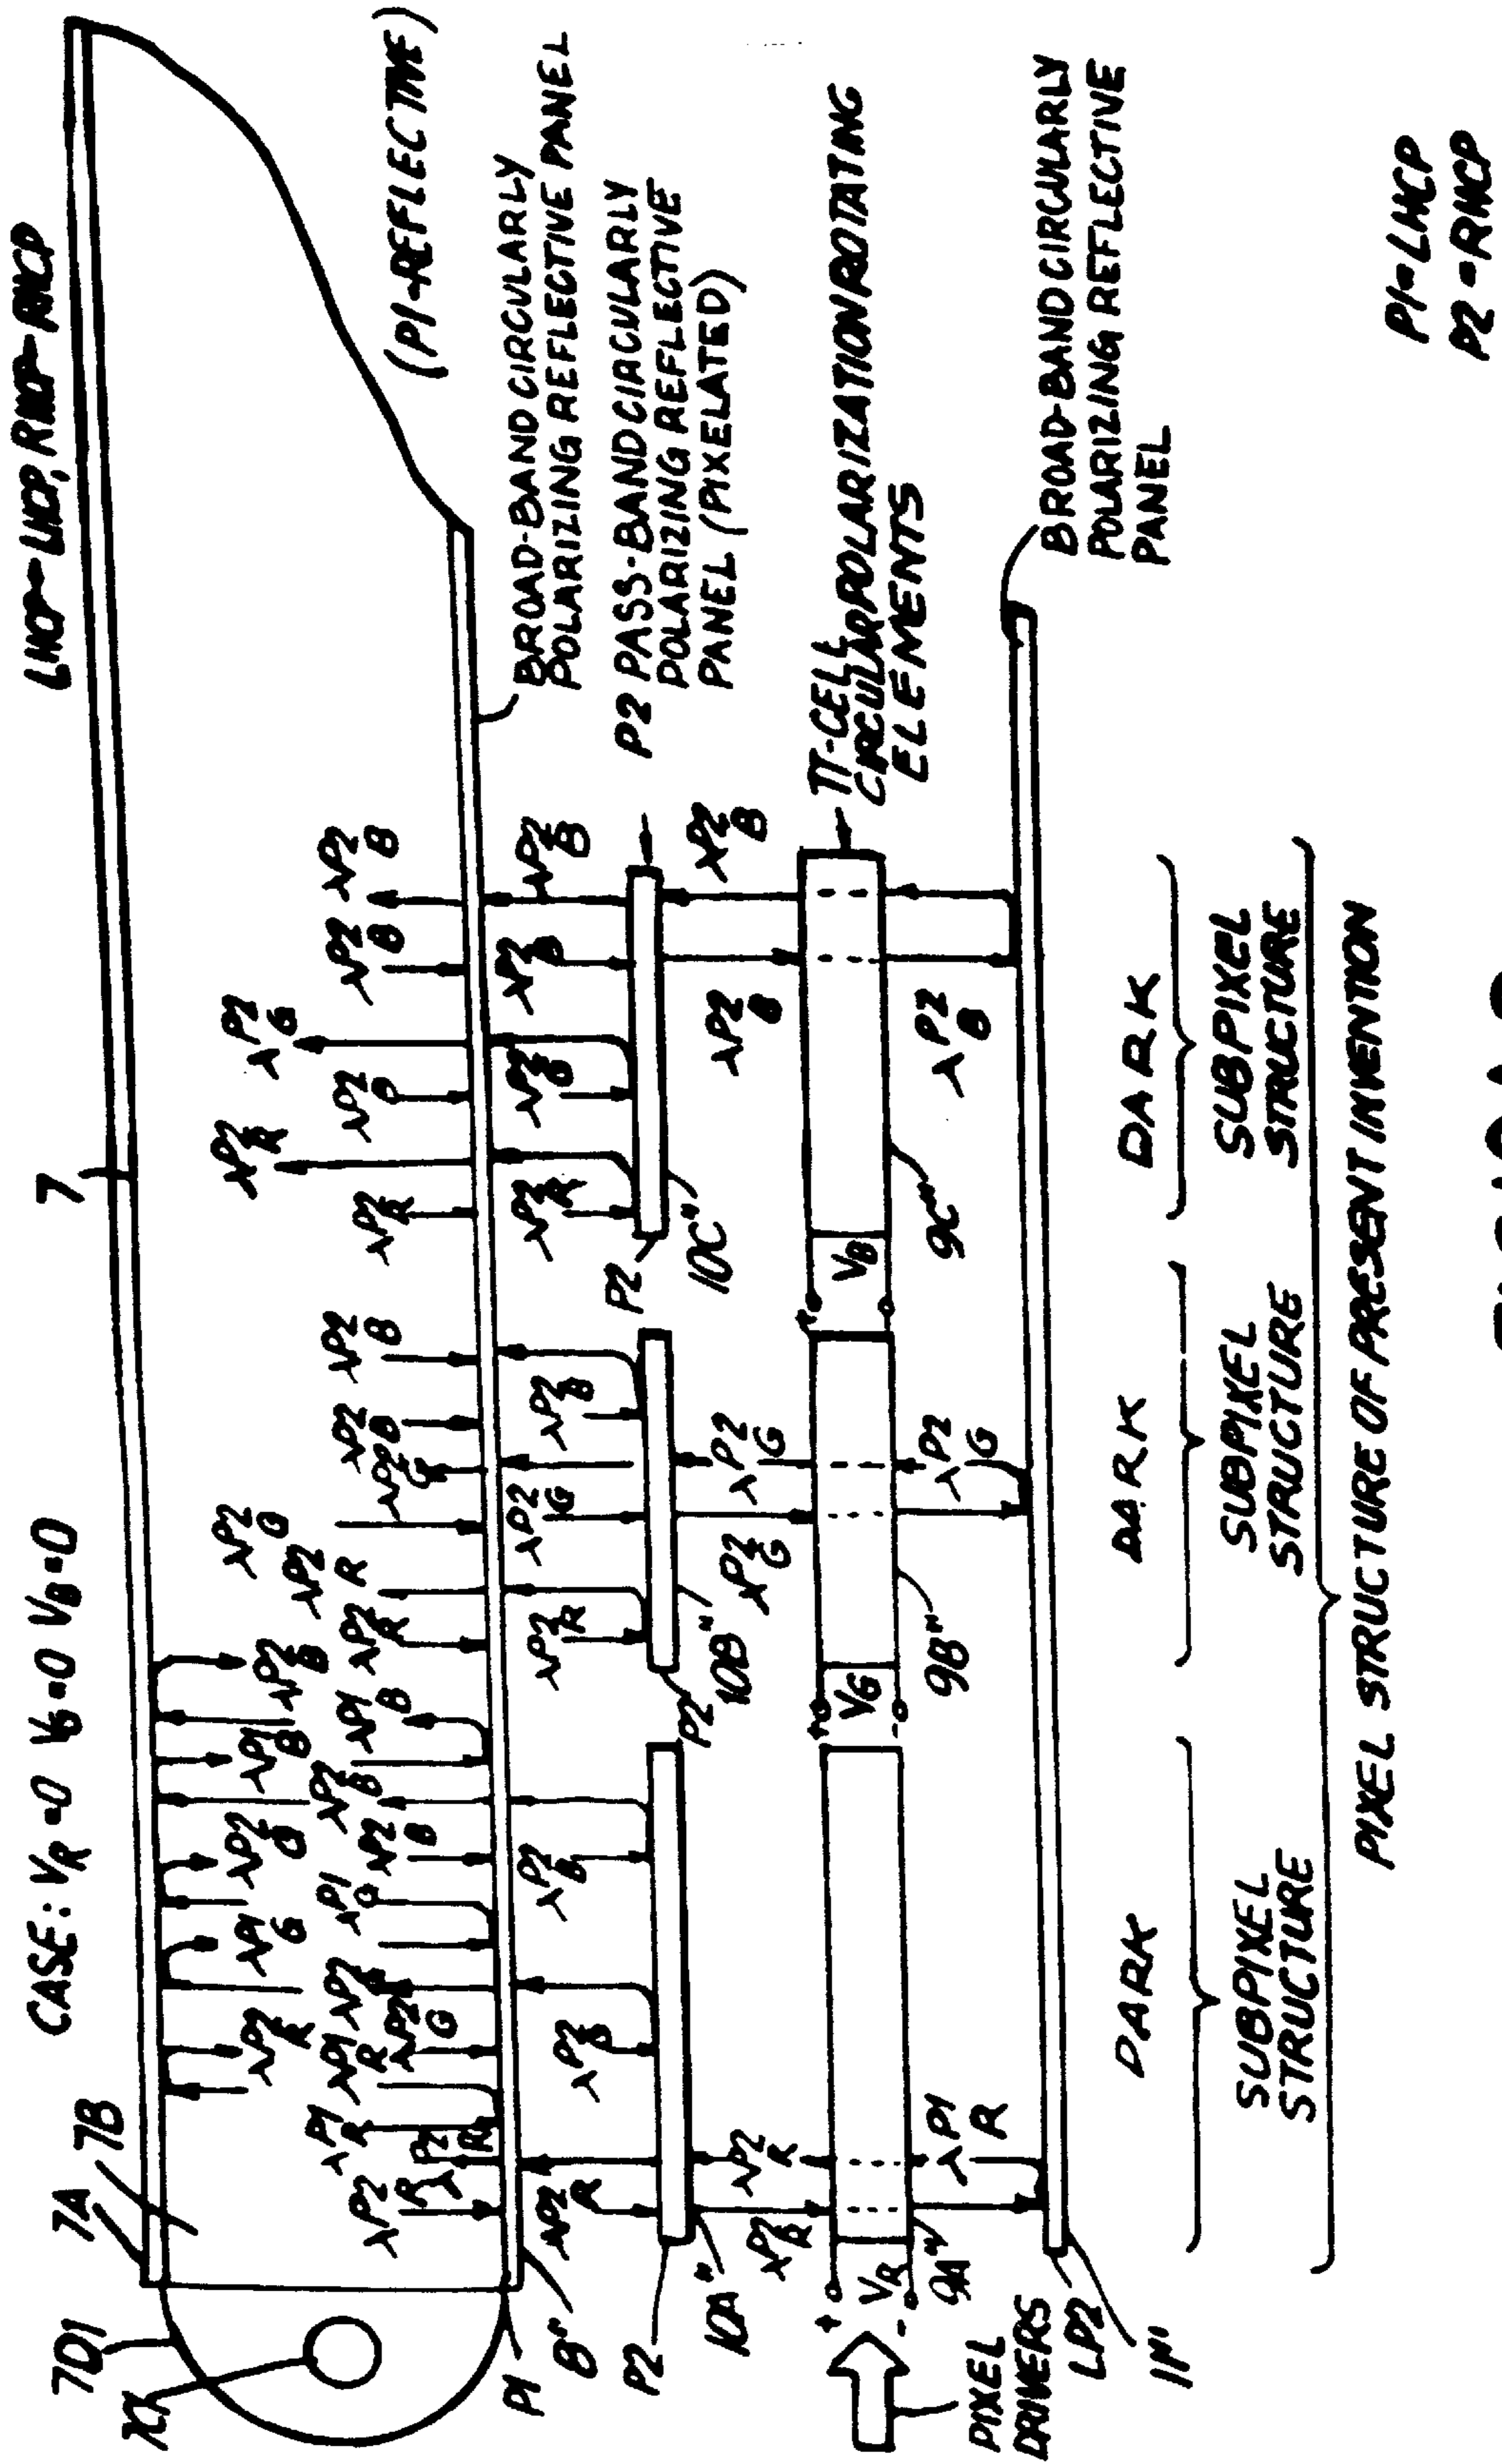 LHCP→LHCP, RHCP→RHCP
CASE: VR=0 VG=0 VB=0
7
7A
7B
7D1
X1
(P1-REFLECTIVE)
BROAD-BAND CIRCULARLY
POLARIZING REFLECTIVE PANEL
P2 PASS-BAND CIRCULARLY
POLARIZING REFLECTIVE
PANEL (PIXELATED)
π-CELL
CIRCULAR POLARIZATION ROTATING
ELEMENTS
BROAD-BAND CIRCULARLY
POLARIZING REFLECTIVE
PANEL
P1=LHCP
P2=RHCP
λP2 R
λP1 R
λP1 R
λP2 G
λP2 R
λP1 G
λP2 G
λP1 G
λP2 B
λP2 B
λP1 B
λP1 B
λP2 B
λP2 R
λP2 R
λP2 G
λP2 G
λP2 B
λP2 R
λP2 R
λP2 G
λP2 B
λP2 B
P1
8"
λP2 R
λP2 B
λP2 R
λP2 G
λP2 B
λP2 R
λP2 B
λP2 B
P2
10A"
P2
10B"
P2
10C"
λP2 R
λP2 R
λP2 G
λP2 G
λP2 B
λP2 B
+
VR
-
9A"
+
VG
-
9B"
+
VB
-
9C"
λP1 R
λP2 G
λP2 B
PIXEL
DRIVERS
LP2
11"
DARK
DARK
DARK
SUBPIXEL
STRUCTURE
SUBPIXEL
STRUCTURE
SUBPIXEL
STRUCTURE
PIXEL STRUCTURE OF PRESENT INVENTION